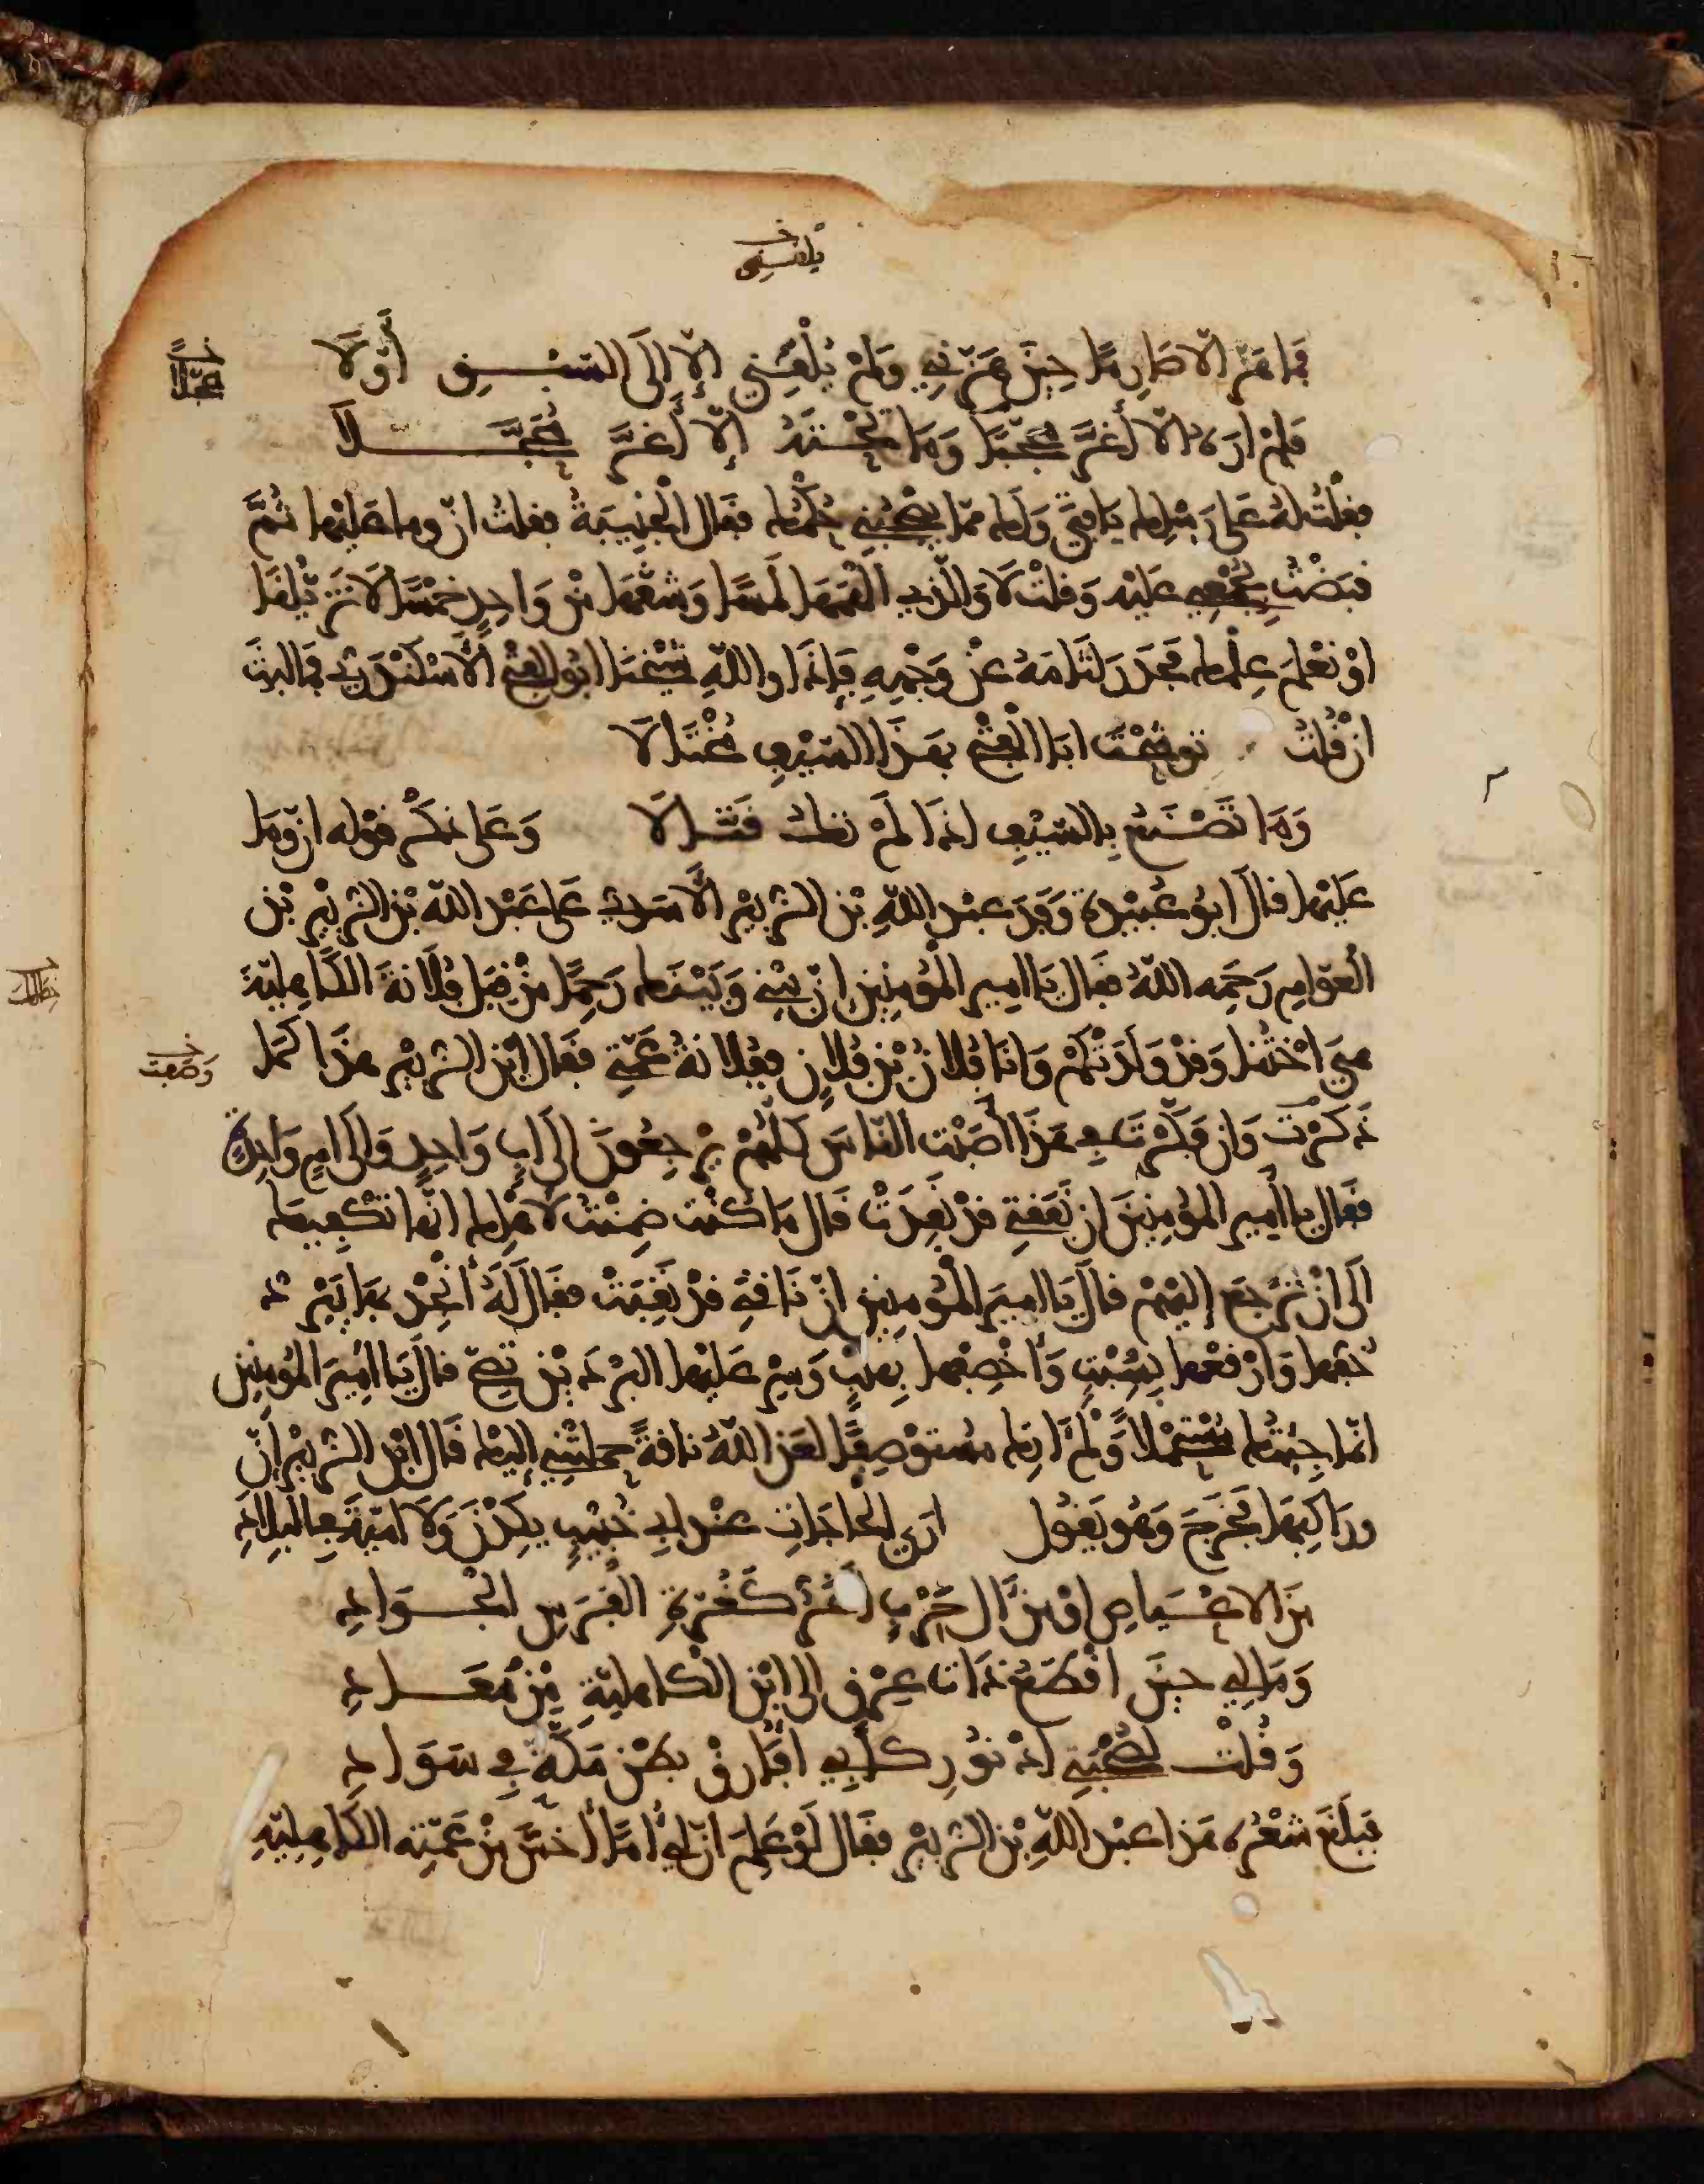 يلقني خ
فما هز الا صارما حين هزني ولم يلقني إلا إلى السبق أولا
خ عجلا
فلم اره الا أغر محجبا وما تحته إلا أغر محجلا
فقلت له على رسلك يا فتى ولك مما يصحبني حكمك فقال الحقيبة فقلت ان وما عليها ثم
قبضت بجمعي عليه وقلت لا والذي ألهمها لمسا وشقها من واحدة خمسا لا تزايلنا
او نعلم علمك فحدر لثامه عن وجهه فإذا والله شيخنا ابو الفتح الاسكندري فما لبثت
ان قلت توشحت ابا الفتح بهذا السيف مختالا
وما تصنع بالسيف اذا لم تك قتالا وعلى ذكر قوله ان وما
عليها قال ابو عبيدة وفد عبد الله بن الزبير الأسدي على عبد الله بن الزبير بن
العوام رحمه الله فقال يا امير المؤمنين ان بيني وبينك رحما من قبل فلانة الكاهلية
هي اختنا وقد ولدتكم وانا فلان بن فلان ففلانة عمتي فقال ابن الزبير هذا كما
خ وصفت
ذكرت وان فكرت في هذا أصبت الناس كلهم يرجعون الى اب واحد والى ام واحدة
فقال يا أمير المؤمنين ان نفقتي قد نفدت قال ما كنت ضمنت لأهلك انها تكفيك
الى ان ترجع إليهم قال يا امير المؤمنين ان ناقتي قد نقبت فقال له أنجد بها يبرد
خفها وارقعها بسبت واخصفها بهلب وسر عليها البردين تصح قال يا امير المؤمنين
انما جئتك مستحملا ولم اتك مستوصفا لعن الله ناقة حملتني إليك قال ابن الزبير إن
وراكبها فخرج وهو يقول ارى الحاجات عند ابي خبيب يكدن ولا امية في البلاد
من الاعياص او من آل حرب اغر كغرة الفرس الجواد
وما لي حين اقطع ذات عرق الى ابن الكاهلية من معاد
وقلت لصحبتي ادنو ركابي افارق بطن مكة في سواد
فبلغ شعره هذا عبد الله بن الزبير فقال لو علم ان لي أما أخس من عمته الكاهلية